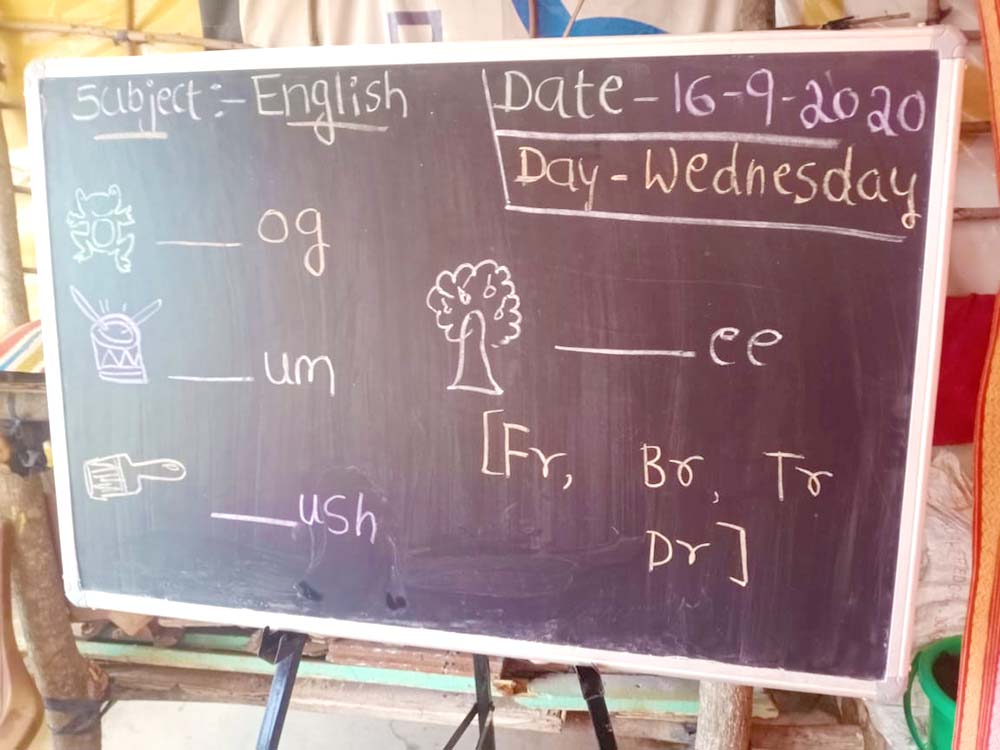 Subject:- English
Date - 16-9-2020
Day - Wednesday
___ og
___ um
___ ush
___ ee
[Fr, Br, Tr
Dr]